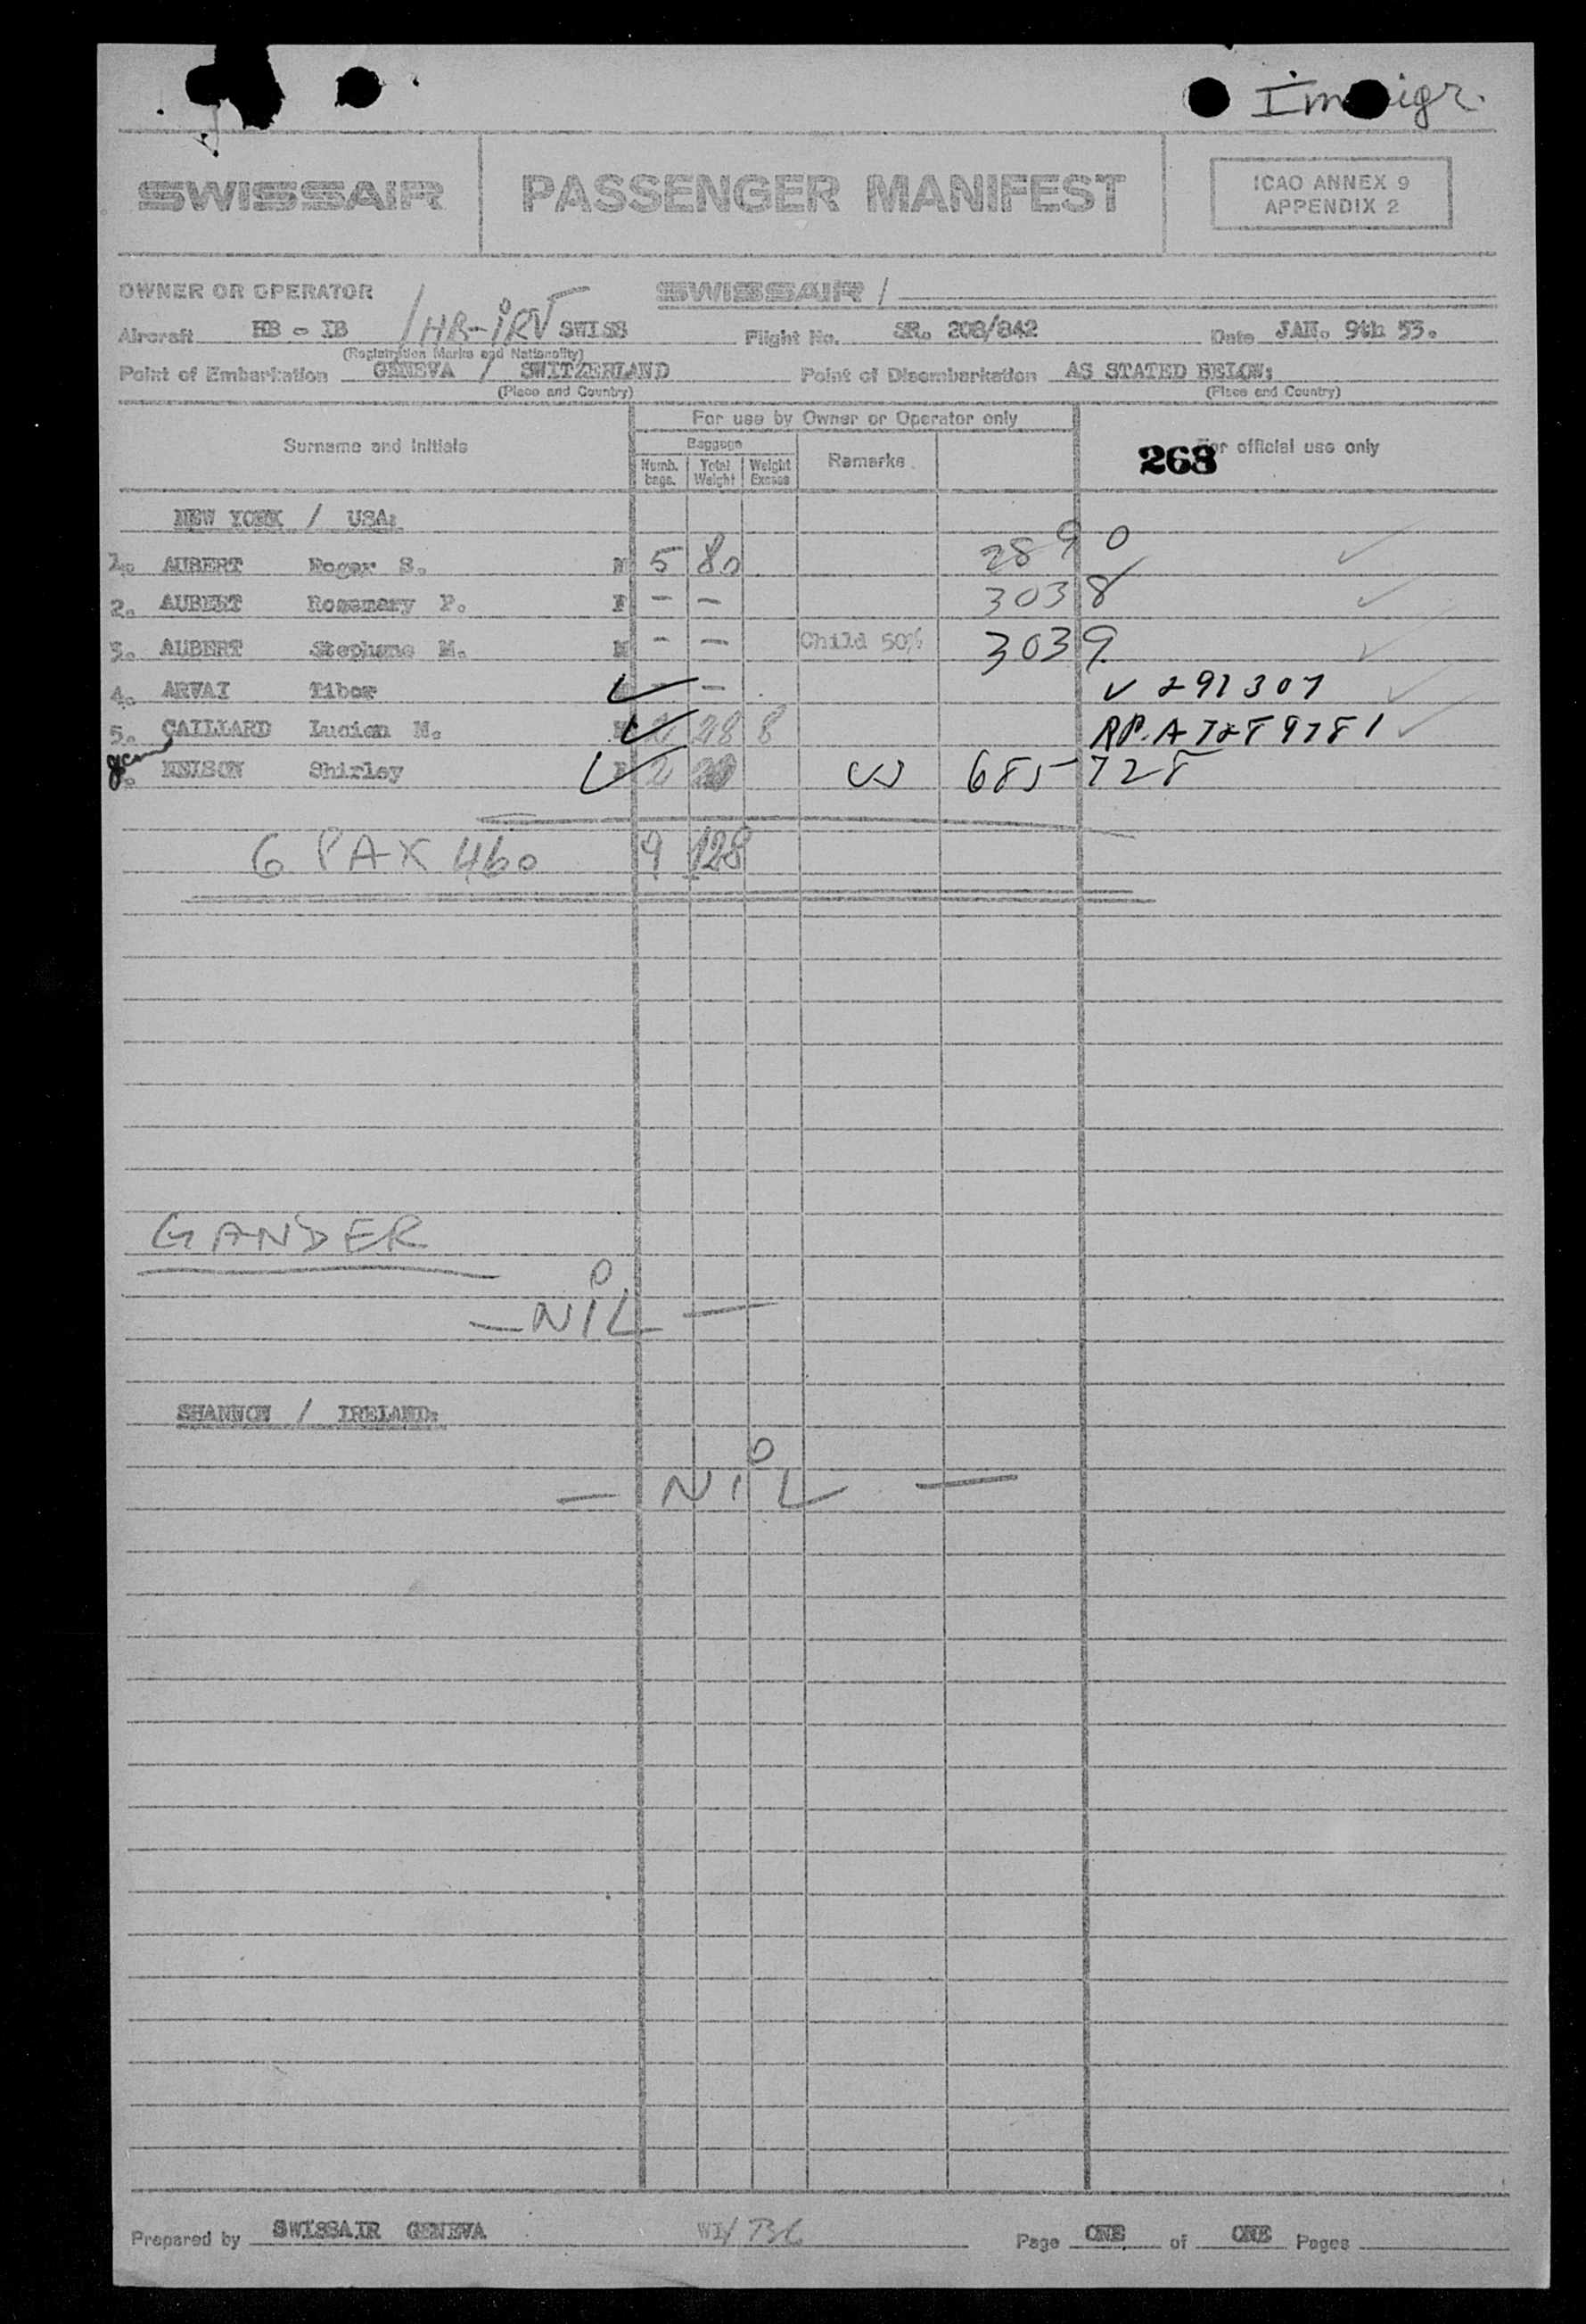 Immigr.
SWISSAIR PASSENGER MANIFEST ICAO ANNEX 9
APPENDIX 2
OWNER OR OPERATOR SWISSAIR /
Aircraft HB - IB /HB-IRV SWISS Flight No. SR. 208/842 Date JAN. 9th 53.
(Registration Marks and Nationality)
Point of Embarkation GENEVA / SWITZERLAND Point of Disembarkation AS STATED BELOW:
(Place and Country) (Place and Country)
For use by Owner or Operator only
Surname and Initials Baggage Remarks 268 For official use only
Numb. bags. Total Weight Weight Excess
NEW YORK / USA:
1. AUBERT Roger S. M 5 80 2890 ✓
2. AUBERT Rosemary P. F — — 3038 ✓
3. AUBERT Stephane M. M - — Child 50% 3039 ✓
4. ARVAI Tibor ✓ - — V 291307 ✓
5. CAILLIARD Lucien M. M ✓ 2 28 8 RP. A ✓
NEISON Shirley F ✓ 2 20 685728
6 PAX 460 9 128
GANDER
0
— NIL —
SHANNON / IRELAND:
0
— NIL —
Prepared by SWISSAIR GENEVA WI/ Page ONE of ONE Pages